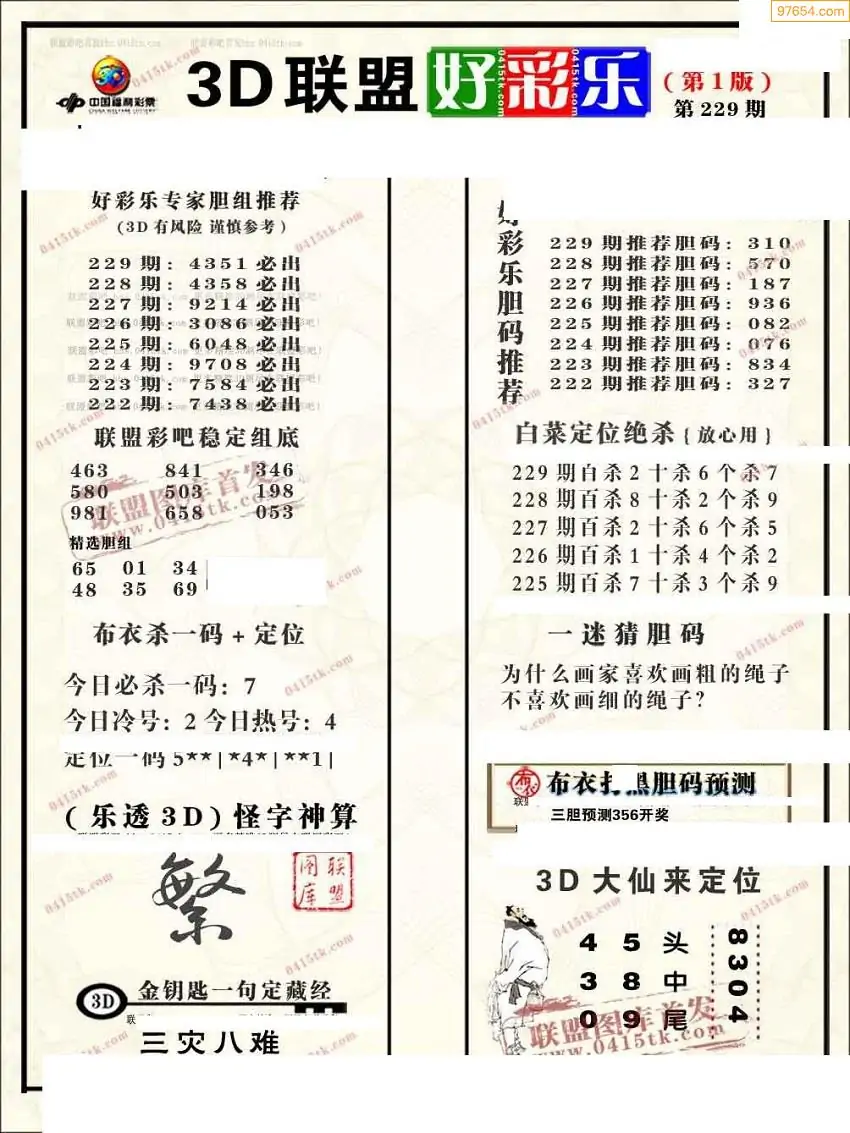 97654.com
3D联盟好彩乐
(第1版)
第229期
中国福利彩票
CHINA WELFARE LOTTERY
好彩乐专家胆组推荐
(3D有风险 谨慎参考)
229期：4351必出
228期：4358必出
227期：9214必出
226期：3086必出
225期：6048必出
224期：9708必出
223期：7584必出
222期：7438必出
联盟彩吧稳定组底
463 841 346
580 503 198
981 658 053
精选胆组
65 01 34
48 35 69
布衣杀一码+定位
今日必杀一码：7
今日冷号：2 今日热号：4
定位一码 5**|*4*|**1|
(乐透3D)怪字神算
繁
联盟图库
3D
金钥匙一句定藏经
三灾八难
好彩乐胆码推荐
229期推荐胆码：310
228期推荐胆码：570
227期推荐胆码：187
226期推荐胆码：936
225期推荐胆码：082
224期推荐胆码：076
223期推荐胆码：834
222期推荐胆码：327
白菜定位绝杀{放心用}
229期百杀2十杀6个杀7
228期百杀8十杀2个杀9
227期百杀2十杀6个杀5
226期百杀1十杀4个杀2
225期百杀7十杀3个杀9
一迷猜胆码
为什么画家喜欢画粗的绳子
不喜欢画细的绳子?
布衣
布衣扫黑胆码预测
三胆预测356开奖
3D大仙来定位
4 5 头
3 8 中
0 9 尾
8304
联盟图库首发
www.0415tk.com
0415tk.com